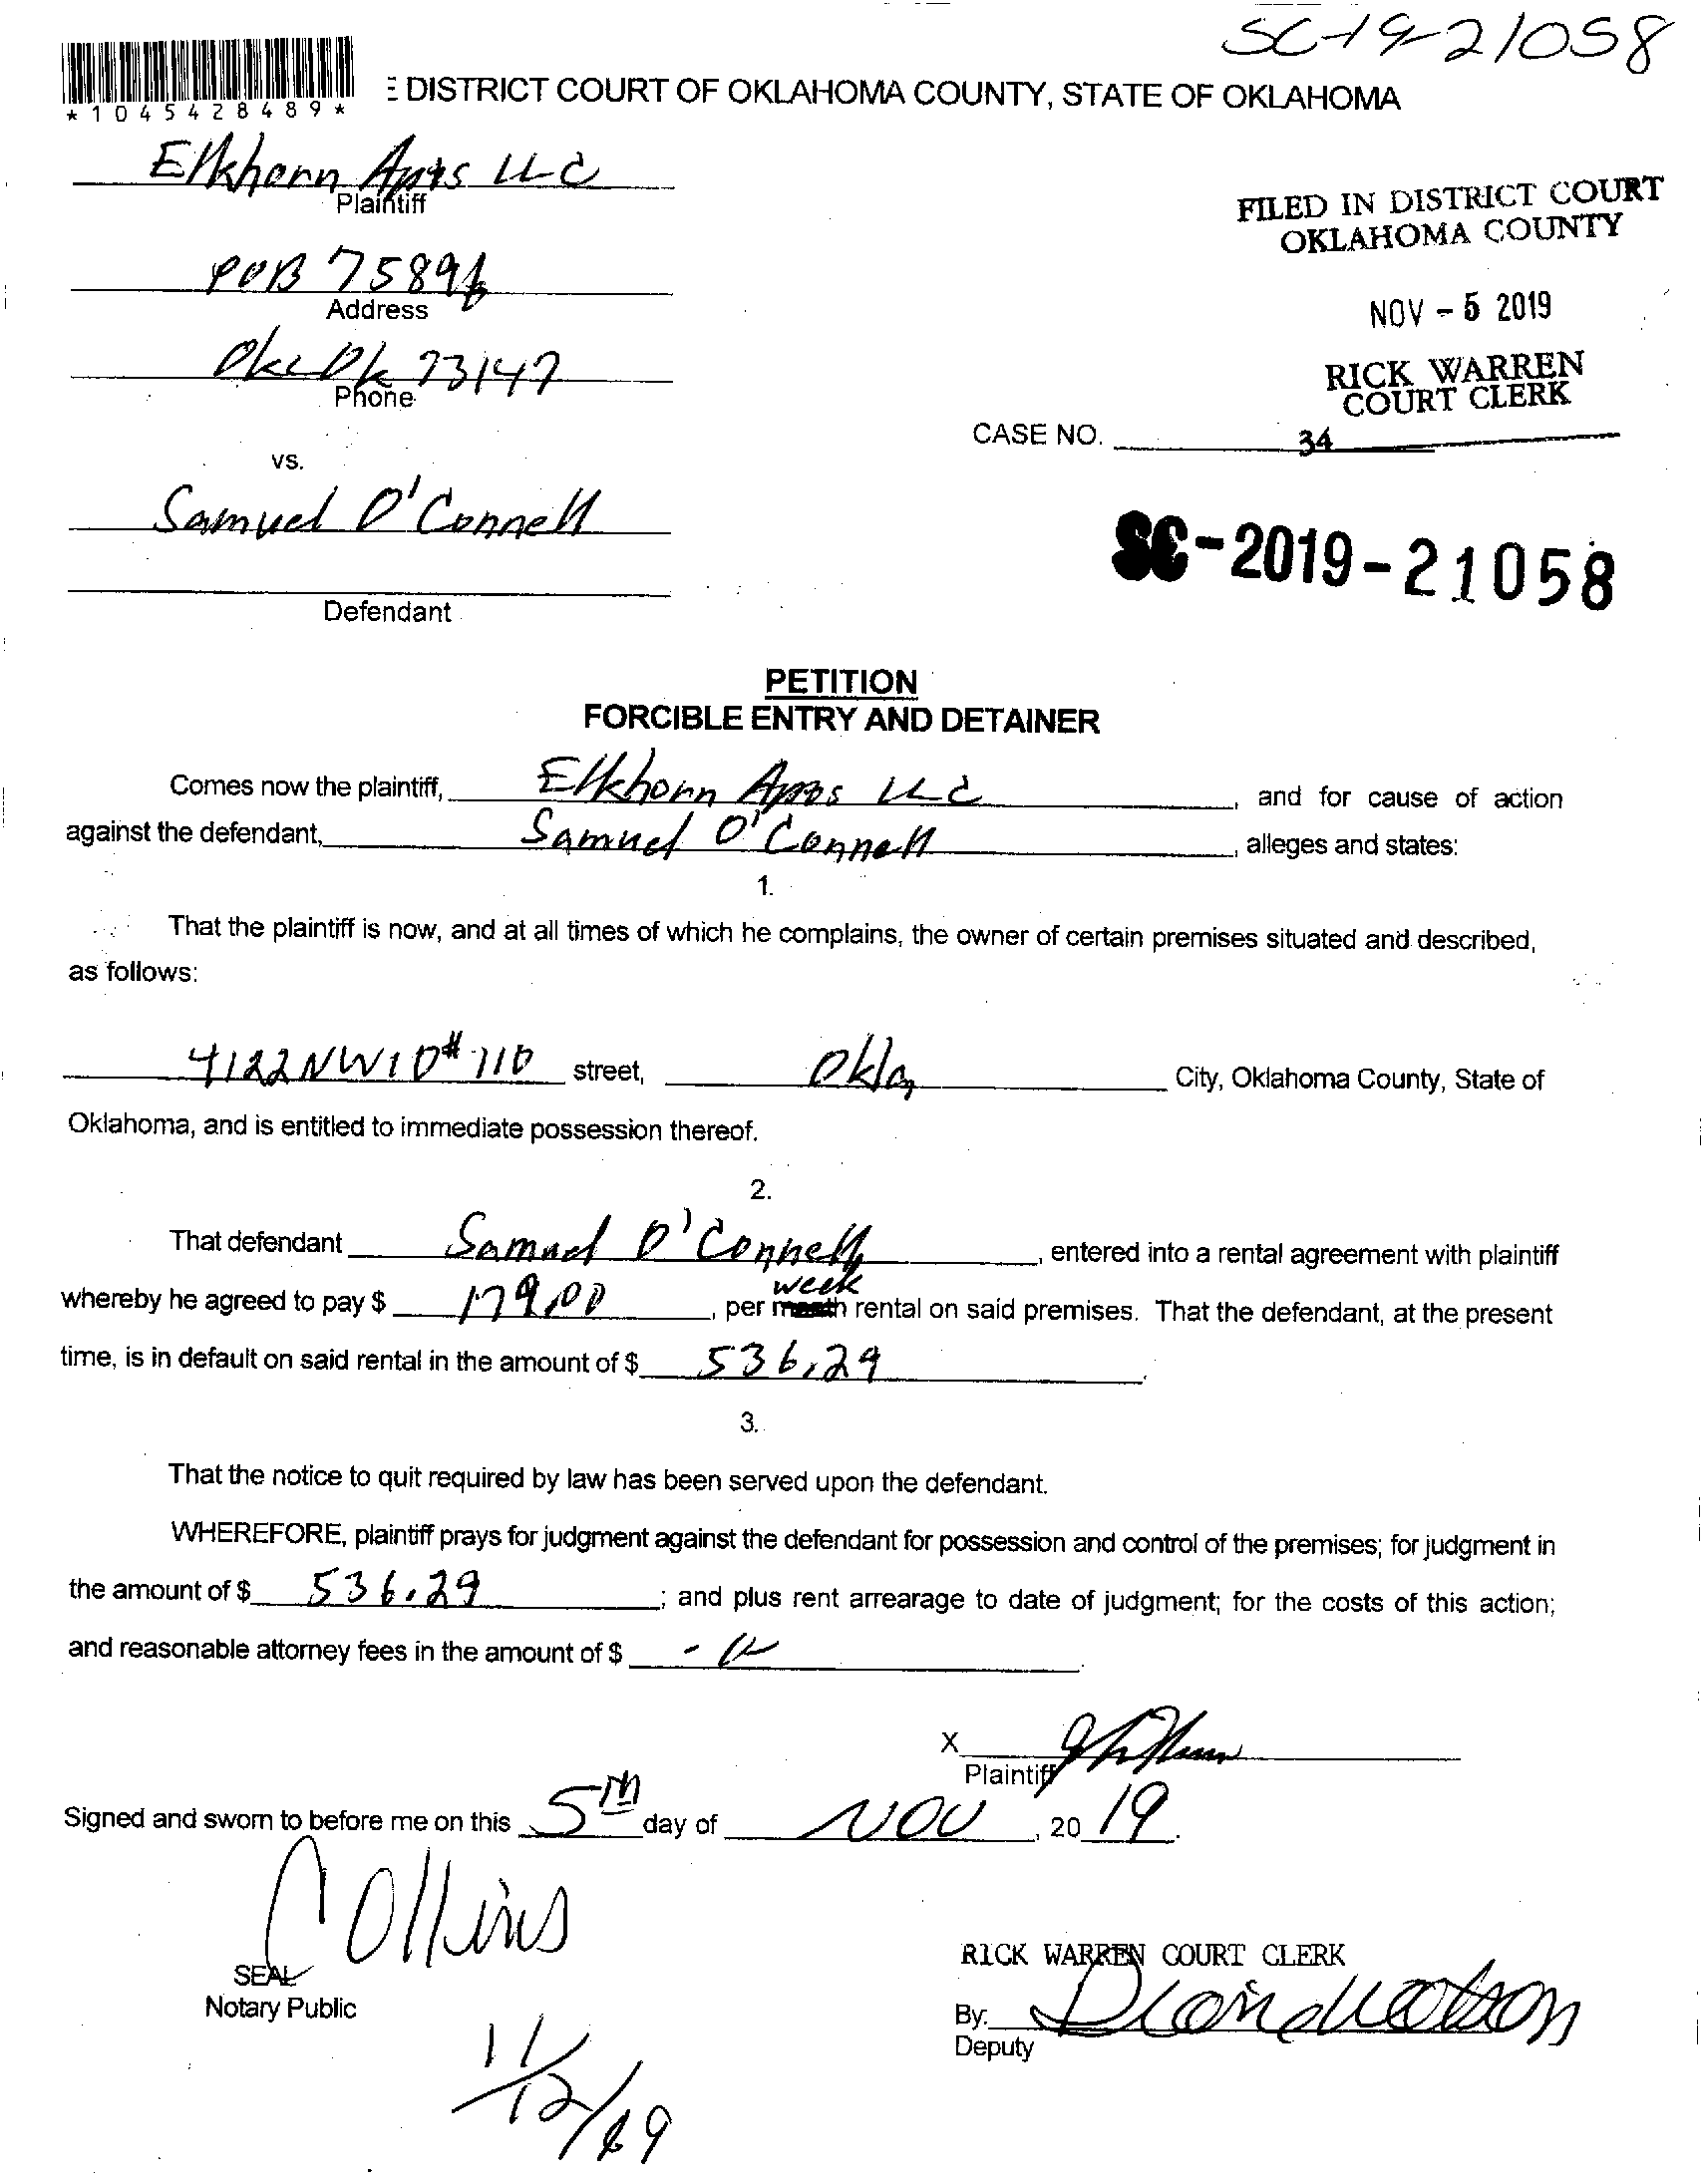 SC-19-21058
*1045428489*
E DISTRICT COURT OF OKLAHOMA COUNTY, STATE OF OKLAHOMA
Elkhorn Apts LLC
Plaintiff
FILED IN DISTRICT COURT
OKLAHOMA COUNTY
POB 75896
Address
NOV - 5 2019
Okc Ok 73147
Phone
RICK WARREN
COURT CLERK
CASE NO.
34
vs.
Samuel O'Connell
SC-2019-21058
Defendant
PETITION
FORCIBLE ENTRY AND DETAINER
Comes now the plaintiff, Elkhorn Apts LLC, and for cause of action
against the defendant, Samuel O'Connell, alleges and states:
1.
That the plaintiff is now, and at all times of which he complains, the owner of certain premises situated and described,
as follows:
4122 NW 10 # 110 street, Okla City, Oklahoma County, State of
Oklahoma, and is entitled to immediate possession thereof.
2.
That defendant Samuel O'Connell, entered into a rental agreement with plaintiff
week
whereby he agreed to pay $ 179.00, per month rental on said premises. That the defendant, at the present
time, is in default on said rental in the amount of $ 536.29.
3.
That the notice to quit required by law has been served upon the defendant.
WHEREFORE, plaintiff prays for judgment against the defendant for possession and control of the premises; for judgment in
the amount of $ 536.29; and plus rent arrearage to date of judgment; for the costs of this action;
and reasonable attorney fees in the amount of $
X
Plaintiff
Signed and sworn to before me on this 5th day of NOV, 20 19.
Collins
SEAL
Notary Public
RICK WARREN COURT CLERK
By:
Deputy
11/12/19